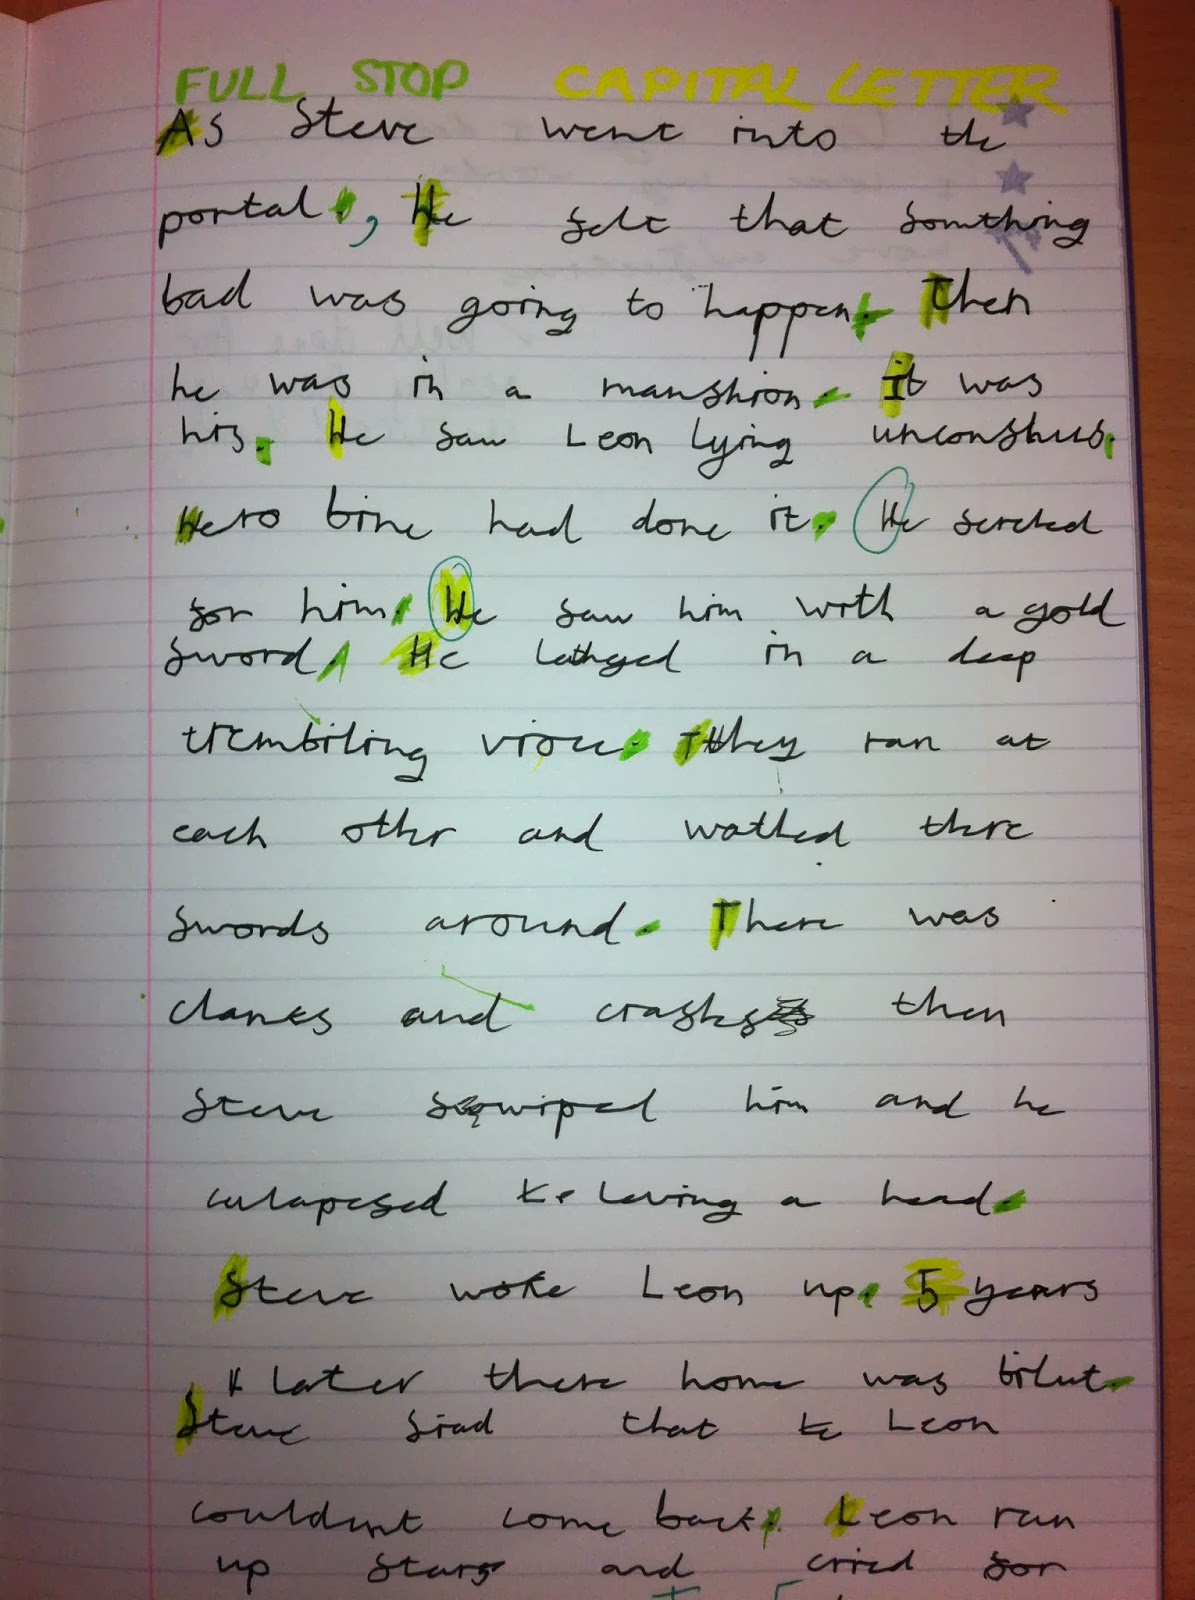 FULL STOP CAPITAL LETTER
As Steve went into the
portal., He felt that somthing
bad was going to happen. Then
he was in a manshion. It was
his. He saw Leon lying unconshus.
Hero brine had done it. He serched
for him. He saw him with a gold
sword. He lathged in a deep
trembiling vioce. They ran at
each other and watked there
swords around. There was
clanks and crashes then
Steve swiped him and he
culapesed leving a head.
Steve woke Leon up. 5 years
later there home was bilut.
Steve siad that Leon
couldent come back. Leon ran
up stars and cried for